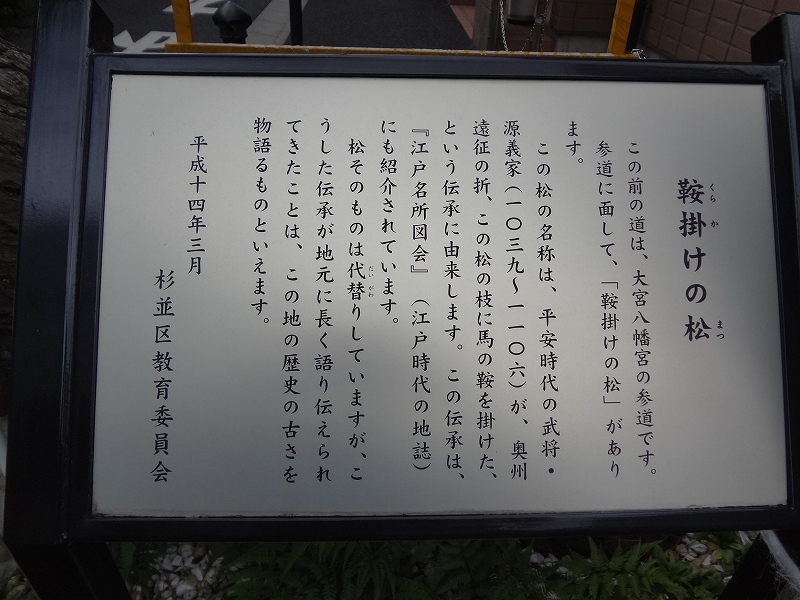 鞍掛けの松
くらか
まつ
この前の道は、大宮八幡宮の参道です。
参道に面して、「鞍掛けの松」があり
ます。
この松の名称は、平安時代の武将・
源義家(一〇三九〜一一〇六)が、奥州
遠征の折、この松の枝に馬の鞍を掛けた、
という伝承に由来します。この伝承は、
『江戸名所図会』(江戸時代の地誌)
にも紹介されています。
松そのものは代替りしていますが、こ
だいがわ
うした伝承が地元に長く語り伝えられ
てきたことは、この地の歴史の古さを
物語るものといえます。
平成十四年三月
杉並区教育委員会